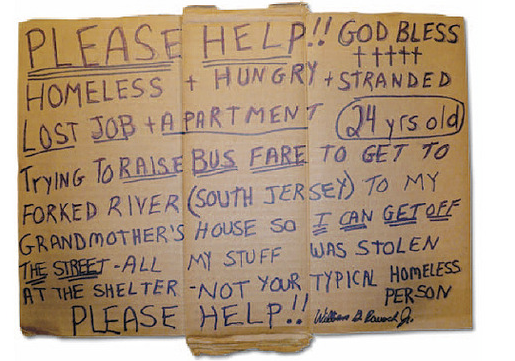 PLEASE HELP!! GOD BLESS
†††††
HOMELESS + HUNGRY + STRANDED
LOST JOB + APARTMENT (24 yrs old)
TryING TO RAISE BUS FARE TO GET TO
FORKED RIVER (SOUTH JERSEY) TO MY
GRANDMOTHER'S HOUSE SO I CAN GET OFF
THE STREET - ALL MY STUFF WAS STOLEN
AT THE SHELTER - NOT YOUR TYPICAL HOMELESS
PERSON
PLEASE HELP!! William Jr.